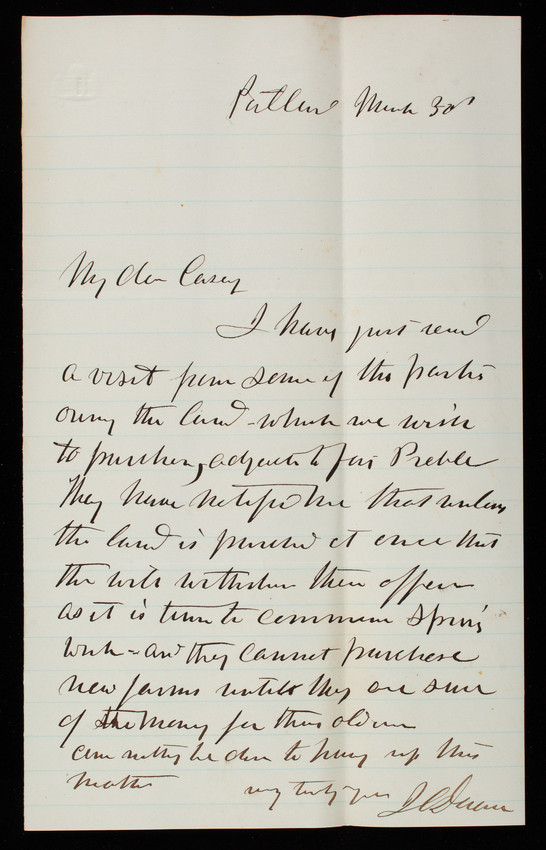 Portland March 30
My dear Casey
I have just recd
a visit from some of the parties
owing the land - which we wish
to purchase, adjacent to fort Preble
They have notified me that unless
the land is purchased at once that
they will withdraw their offers
as it is time to commence Spring
work - and they cannot purchase
new farms until they are sure
of the money for their old ones
can nothing be done to hurry up this
matter
very truly yours